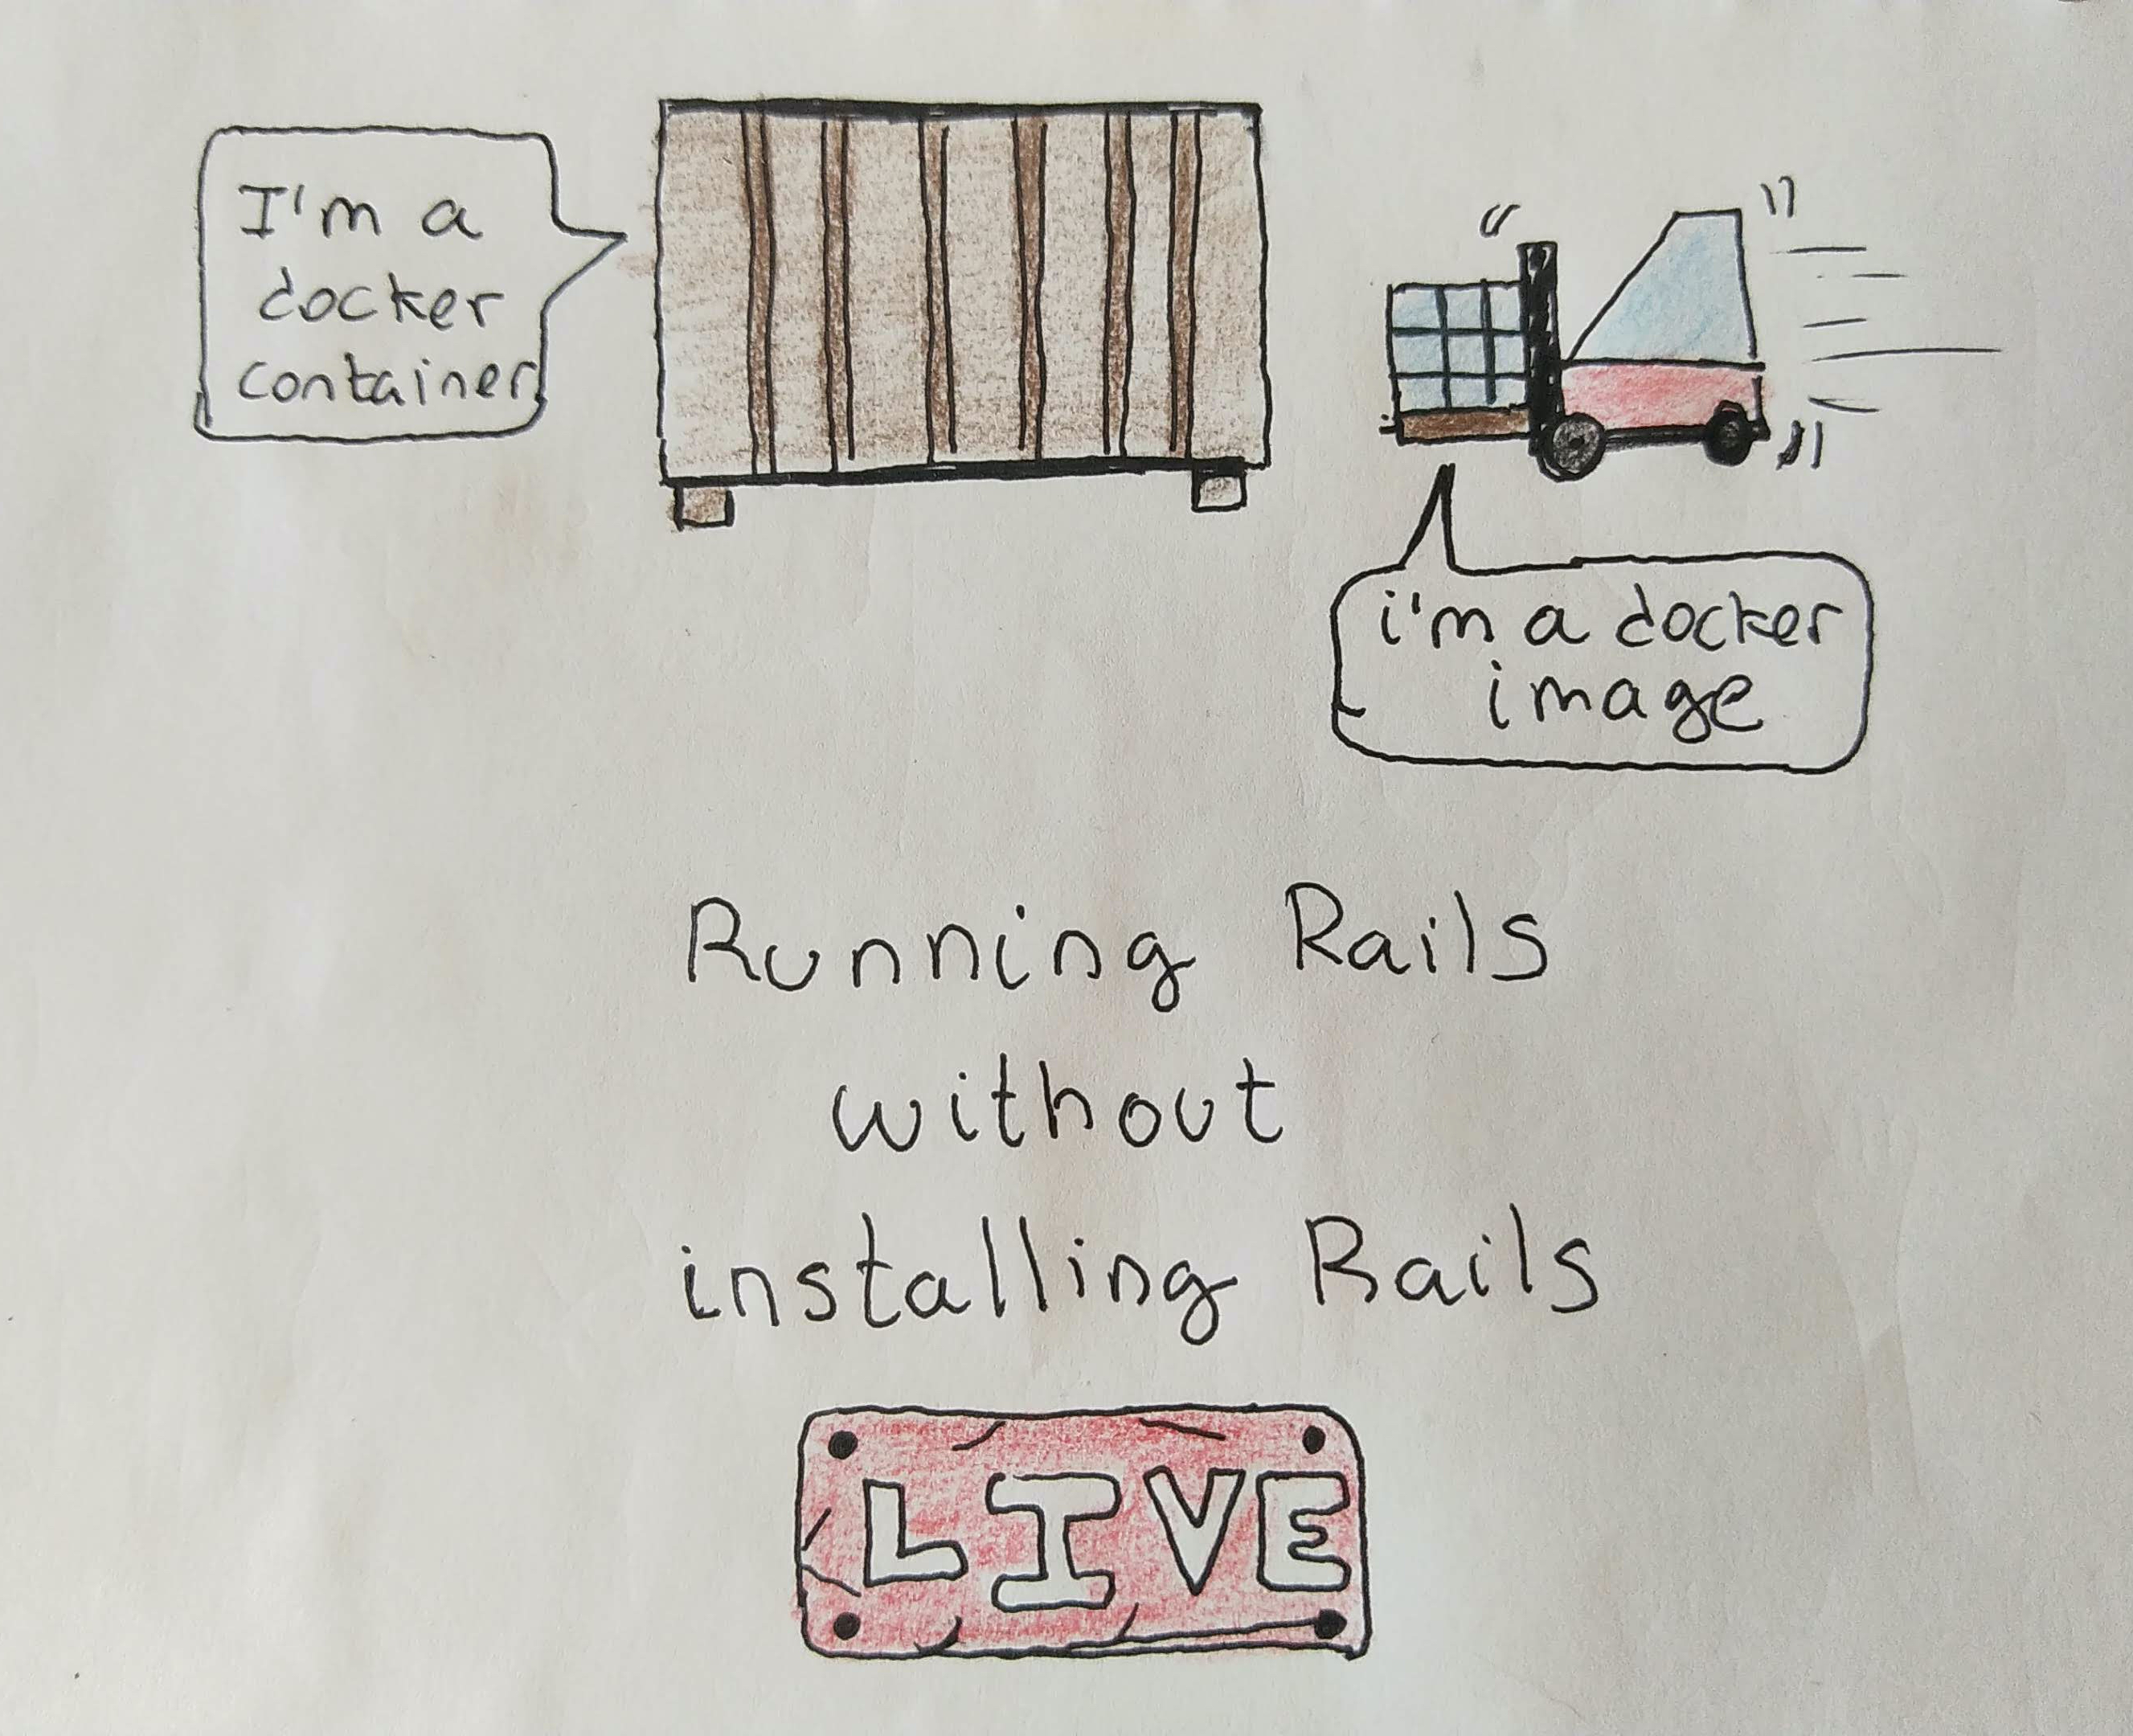 I'm a
docker
container
i'm a docker
image
Running Rails
without
installing Rails
LIVE